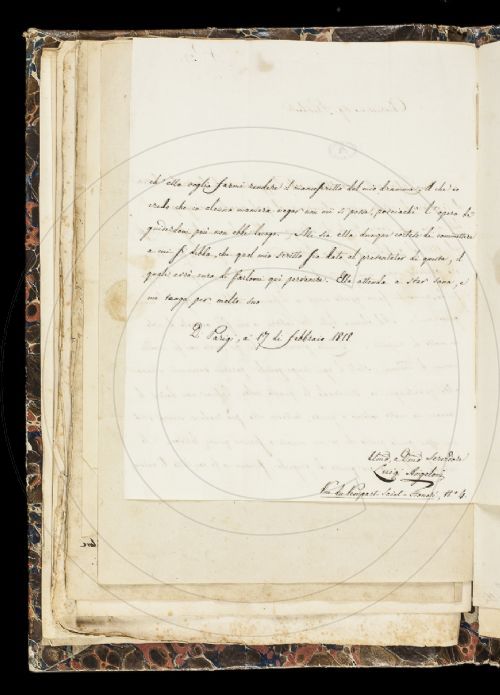 ch' ella voglia farmi rendere il manoscritto del mio dramma; il che io
credo che in alcuna maniera negar non mi si possa, posciachè l'opera di
guiderdoni poi non ebbe luogo. Mi sia ella dunque cortese di commettere
a cui si debba, che quel mio scritto sia dato al presentator di questa, il
quale avrà cura di farlomi qui pervenire. Ella attenda a star sana, e
me tenga per molto suo
Di Parigi, a' 17 di febbraio 1818
Umo, e Dmo servidore
Luigi Angeloni
Rue du Rempart-Saint-Honoré, n.º 4.